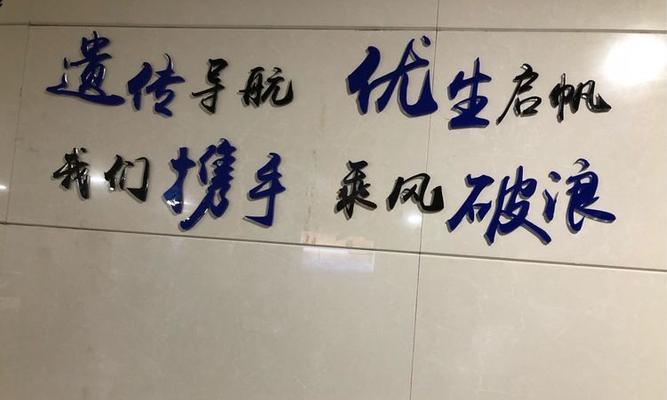 遗传导航 优生启帆
我们携手 乘风破浪